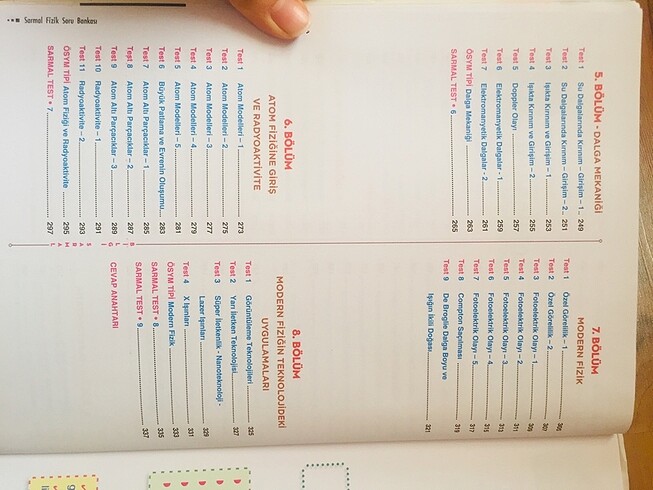 Sarmal Fizik Soru Bankası
5. BÖLÜM - DALGA MEKANİĞİ
Test 1 Su Dalgalarında Kırınım – Girişim – 1 .. 249
Test 2 Su Dalgalarında Kırınım – Girişim – 2.. 251
Test 3 Işıkta Kırınım ve Girişim – 1 ........ 253
Test 4 Işıkta Kırınım ve Girişim – 2 ........ 255
Test 5 Doppler Olayı ........ 257
Test 6 Elektromanyetik Dalgalar - 1 ........ 259
Test 7 Elektromanyetik Dalgalar - 2 ........ 261
ÖSYM TİPİ Dalga Mekaniği ........ 263
SARMAL TEST • 6 ........ 265
6. BÖLÜM
ATOM FİZİĞİNE GİRİŞ
VE RADYOAKTİVİTE
Test 1 Atom Modelleri – 1 ........ 273
Test 2 Atom Modelleri – 2 ........ 275
Test 3 Atom Modelleri – 3 ........ 277
Test 4 Atom Modelleri – 4 ........ 279
Test 5 Atom Modelleri – 5 ........ 281
Test 6 Büyük Patlama ve Evrenin Oluşumu .... 283
Test 7 Atom Altı Parçacıklar – 1 ........ 285
Test 8 Atom Altı Parçacıklar – 2 ........ 287
Test 9 Atom Altı Parçacıklar – 3 ........ 289
Test 10 Radyoaktivite – 1 ........ 291
Test 11 Radyoaktivite – 2 ........ 293
ÖSYM TİPİ Atom Fiziği ve Radyoaktivite ........ 295
SARMAL TEST • 7 ........ 297
7. BÖLÜM
MODERN FİZİK
Test 1 Özel Görelilik – 1 ........ 305
Test 2 Özel Görelilik – 2 ........ 307
Test 3 Fotoelektrik Olayı – 1 ........ 309
Test 4 Fotoelektrik Olayı – 2 ........ 311
Test 5 Fotoelektrik Olayı – 3 ........ 313
Test 6 Fotoelektrik Olayı – 4 ........ 315
Test 7 Fotoelektrik Olayı – 5 ........ 317
Test 8 Compton Saçılması ........ 319
Test 9 De Broglie Dalga Boyu ve
Işığın İkili Doğası ........ 321
8. BÖLÜM
MODERN FİZİĞİN TEKNOLOJİDEKİ
UYGULAMALARI
Test 1 Görüntüleme Teknolojileri ........ 325
Test 2 Yarı İletken Teknolojisi ........ 327
Test 3 Süper İletkenlik - Nanoteknoloji -
Lazer Işınları ........ 329
Test 4 X Işınları ........ 331
ÖSYM TİPİ Modern Fizik ........ 333
SARMAL TEST • 8 ........ 335
SARMAL TEST • 9 ........ 337
CEVAP ANAHTARI